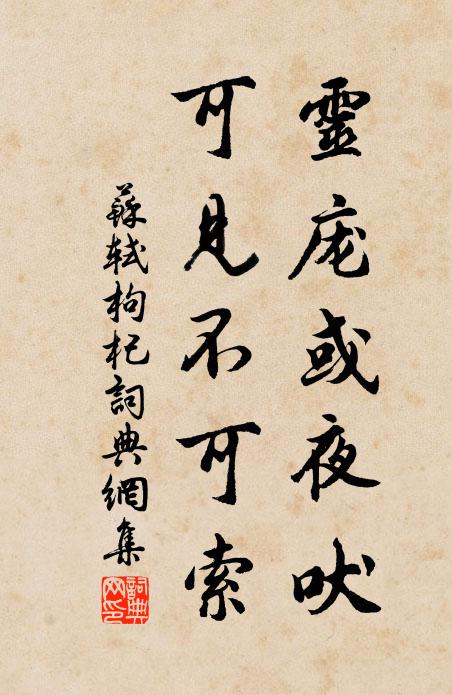 靈庬或夜吠
可見不可索
蘇軾枸杞詞典網集
詞典網印